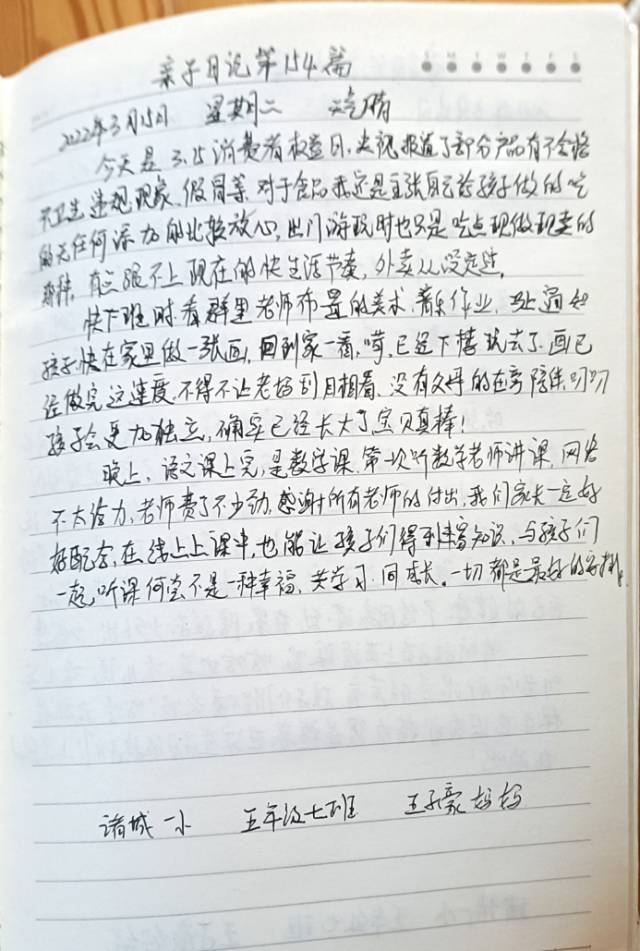 亲子日记第154篇
2022年3月15日 星期二 晴
今天是3.15消费者权益日,央视报道了部分产品有不合格
不卫生违规现象、假冒等.对于食品我还是主张自己给孩子做的吃
的无任何添加的比较放心,出门游玩时也只是吃点现做现卖的
那种.有点跟不上现在的快生活节奏,外卖从没定过.
快下班时.看群里老师布置的美术.音乐作业,马上通知
孩子快在家里做一张画,回到家一看,嗬,已经下楼玩去了.画已
经做完.这速度.不得不让老妈刮目相看、没有父母的在旁陪伴.叨叨
孩子会更加独立,确实已经长大了宝贝真棒!
晚上,语文课上完,是数学课.第一次听数学老师讲课,网络
不太给力,老师费了不少劲,感谢所有老师的付出,我们家长一定好
好配合,在线上上课中,也能让孩子们得到丰富知识、与孩子们
一起,听课何尝不是一种幸福,共学习.同成长。一切都是最好的安排.
诸城一小 五年级七班 王子豪妈妈